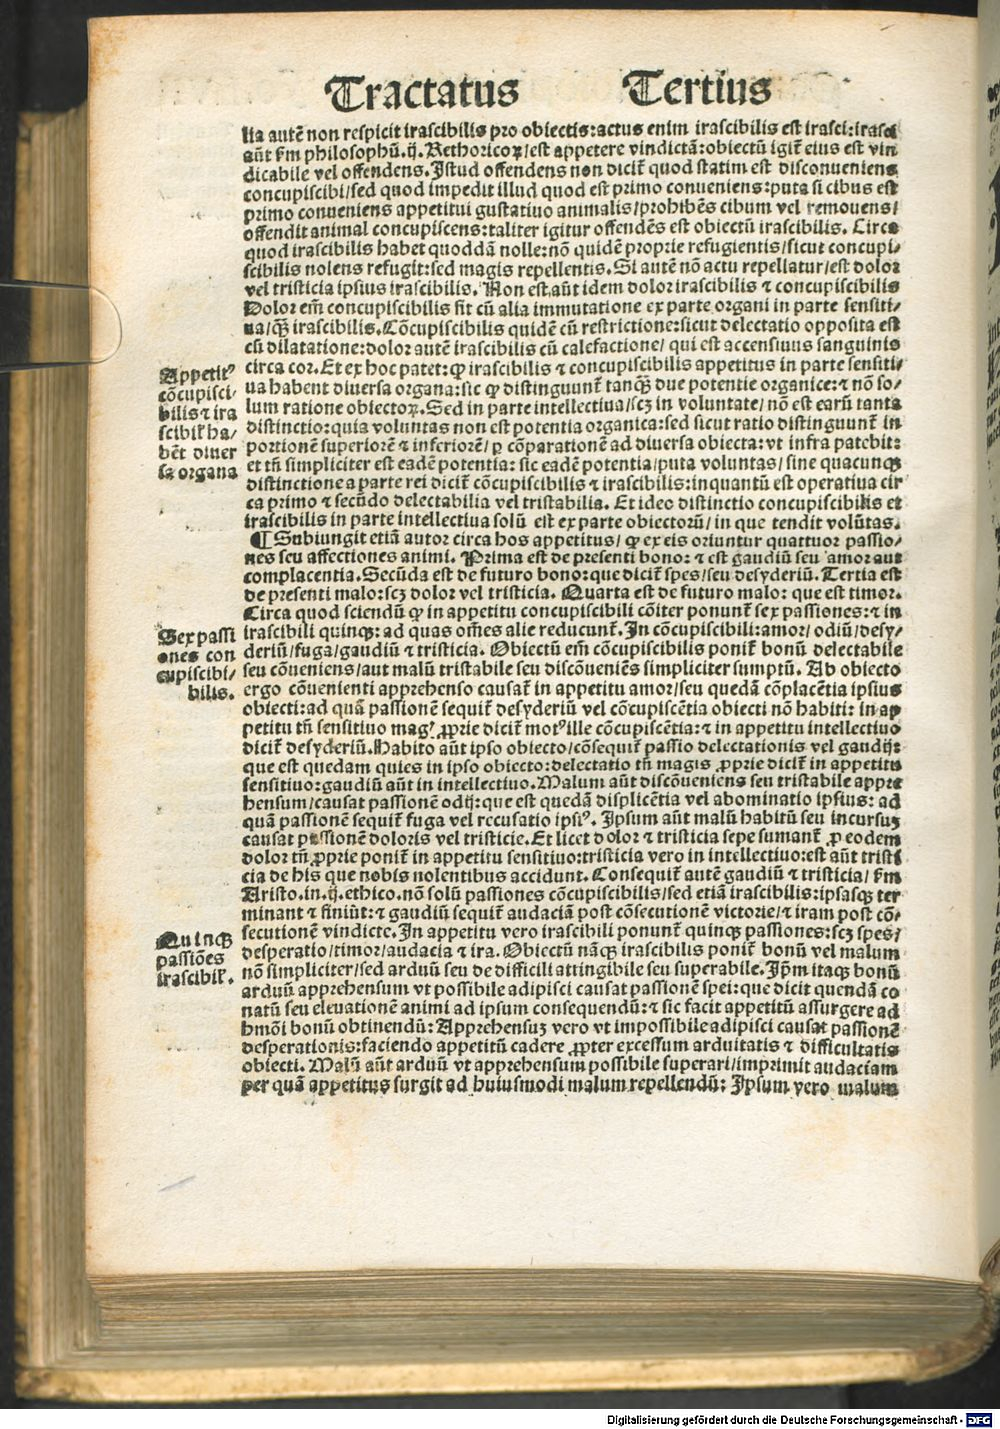 Tractatus Tertius
lia autẽ non respicit irascibilis pro obiectis:actus enim irascibilis est irasci:irasci
aũt ẜm philosophũ.ij. Rethoricoꝝ/est appetere vindictã:obiectũ igit̃ eius est vin
dicabile vel offendens. Istud offendens non dicit̃ quod statim est disconueniens
concupiscibi/sed quod impedit illud quod est primo conueniens:puta si cibus est
primo conueniens appetitui gustatiuo animalis/prohibẽs cibum vel remouens/
offendit animal concupiscens:taliter igitur offendẽs est obiectũ irascibilis. Circa
quod irascibilis habet quoddã nolle:nõ quidẽ proprie refugientis/sicut concupi/
scibilis nolens refugit:sed magis repellentis. Si autẽ nõ actu repellatur/est dolor
vel tristicia ipsius irascibilis. Non est aũt idem dolor irascibilis ⁊ concupiscibilis
Dolor em̃ concupiscibilis fit cũ alia immutatione ex parte organi in parte sensiti/
ua/q̃ꝫ irascibilis. Cõcupiscibilis quidẽ cũ restrictione:sicut delectatio opposita est
cũ dilatatione:dolor autẽ irascibilis cũ calefactione/ qui est accensiuus sanguinis
circa cor. Et ex hoc patet:ꝙ irascibilis ⁊ concupiscibilis appetitus in parte sensiti/
ua habent diuersa organa:sic ꝙ distinguunt̃ tanq̃ꝫ due potentie organice:⁊ nõ so/
lum ratione obiectoꝝ. Sed in parte intellectiua/scꝫ in voluntate/ nõ est earũ tanta
distinctio:quia voluntas non est potentia organica:sed sicut ratio distinguunt̃ in
portionẽ superiorẽ ⁊ inferiorẽ/ ꝑ cõparationẽ ad diuersa obiecta:vt infra patebit:
et tñ simpliciter est eadẽ potentia: sic eadẽ potentia/puta voluntas/ sine quacunqꝫ
distinctione a parte rei dicit̃ cõcupiscibilis ⁊ irascibilis:inquantũ est operatiua cir
ca primo ⁊ secũdo delectabilia vel tristabilia. Et ideo distinctio concupiscibilis et
irascibilis in parte intellectiua solũ est ex parte obiectorũ/ in que tendit volũtas.
¶ Subiungit etiã autor circa hos appetitus/ ꝙ ex eis oriuntur quattuor passio/
nes seu affectiones animi. Prima est de presenti bono: ⁊ est gaudiũ seu amor aut
complacentia. Secũda est de futuro bono:que dicit̃ spes/seu desyderiũ. Tertia est
de presenti malo:scꝫ dolor vel tristicia. Quarta est de futuro malo: que est timor.
Circa quod sciendũ ꝙ in appetitu concupiscibili cõiter ponunt̃ sex passiones:⁊ in
irascibili quinqꝫ: ad quas om̃es alie reducunt̃. In cõcupiscibili:amor/ odiũ/desy/
deriũ/fuga/gaudiũ ⁊ tristicia. Obiectũ em̃ cõcupiscibilis ponit̃ bonũ delectabile
seu cõueniens/aut malũ tristabile seu discõueniẽs simpliciter sumptũ. Ab obiecto
ergo cõuenienti apprehenso causat̃ in appetitu amor/seu quedã cõplacẽtia ipsius
obiecti:ad quã passionẽ sequit̃ desyderiũ vel cõcupiscẽtia obiecti nõ habiti: in ap
petitu tñ sensitiuo magꝭ ꝓprie dicit̃ motꝰ ille cõcupiscẽtia:⁊ in appetitu intellectiuo
dicit̃ desyderiũ. Habito aũt ipso obiecto/cõsequit̃ passio delectationis vel gaudij:
que est quedam quies in ipso obiecto:delectatio tñ magis ꝓprie dicit̃ in appetitu
sensitiuo:gaudiũ aũt in intellectiuo. Malum aũt discõueniens seu tristabile appre
hensum/causat passionẽ odij:que est quedã displicẽtia vel abominatio ipsius: ad
quã passionẽ sequit̃ fuga vel recusatio ipsiꝰ. Ipsum aũt malũ habitũ seu incursuꝫ
causat passionẽ doloris vel tristicie. Et licet dolor ⁊ tristicia sepe sumant̃ ꝓ eodem
dolor tñ ꝓprie ponit̃ in appetitu sensitiuo:tristicia vero in intellectiuo:est aũt tristi
cia de his que nobis nolentibus accidunt. Consequit̃ autẽ gaudiũ ⁊ tristicia/ ẜm
Aristo.in.ij.ethico.nõ solũ passiones cõcupiscibilis/sed etiã irascibilis:ipsasqꝫ ter
minant ⁊ finiũt:⁊ gaudiũ sequit̃ audaciã post cõsecutionẽ victorie/⁊ iram post cõ/
secutionẽ vindicte. In appetitu vero irascibili ponunt̃ quinqꝫ passiones:scꝫ spes/
desperatio/timor/audacia ⁊ ira. Obiectũ nãqꝫ irascibilis ponit̃ bonũ vel malum
nõ simpliciter/sed arduũ seu de difficili attingibile seu superabile. Ip̃m itaqꝫ bonũ
arduũ apprehensum vt possibile adipisci causat passionẽ spei:que dicit quendã co
natũ seu eleuationẽ animi ad ipsum consequendũ:⁊ sic facit appetitũ assurgere ad
hmõi bonũ obtinendũ: Apprehensuꝫ vero vt impossibile adipisci causat passionẽ
desperationis:faciendo appetitũ cadere ꝓpter excessum arduitatis ⁊ difficultatis
obiecti. Malũ aũt arduũ vt apprehensum possibile superari/imprimit audaciam
per quã appetitus surgit ad huiusmodi malum repellendũ: Ipsum vero malum
Appetitꝰ
cõcupisci/
bilis ⁊ ira
scibil̃ ha/
bẽt diuer
sa organa
Sex passi
ones con
cupiscibi/
bilis.
Quinqꝫ
passiões
irascibil̃.
Digitalisierung gefördert durch die Deutsche Forschungsgemeinschaft - DFG